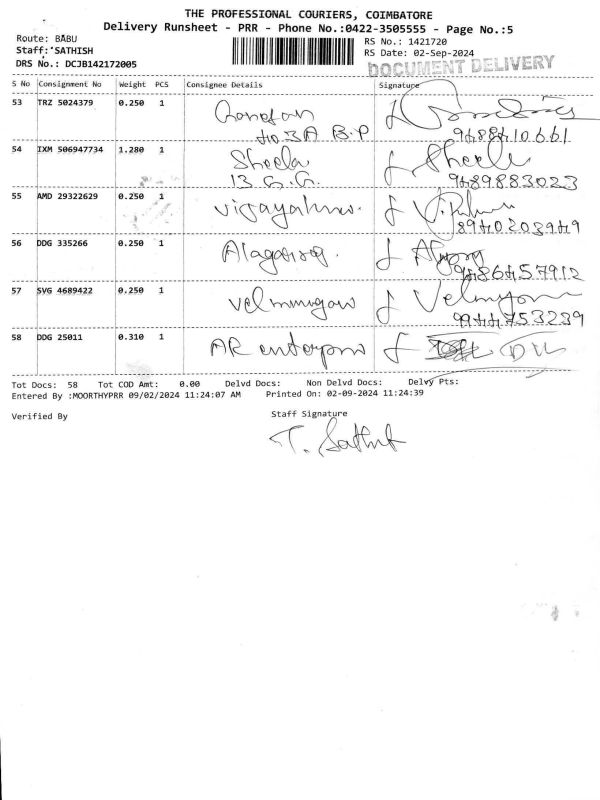 THE PROFESSIONAL COURIERS, COIMBATORE
Delivery Runsheet - PRR - Phone No.:0422-3505555 - Page No.:5
Route: BABU
RS No.: 1421720
Staff: SATHISH
RS Date: 02-Sep-2024
DRS No.: DCJB142172005
DOCUMENT DELIVERY
S No Consignment No Weight PCS Consignee Details Signature
53 TRZ 5024379 0.250 1
3A B.P
54 IXM 506947734 1.280 1 Sheela Sheela
13 G.G.
9489883023
55 AMD 29322629 0.250 1
56 DDG 335266 0.250 1
9486457912
57 SVG 4689422 0.250 1 velmurugan
9944753239
58 DDG 25011 0.310 1 AR enterprise
Tot Docs: 58 Tot COD Amt: 0.00 Delvd Docs: Non Delvd Docs: Delvy Pts:
Entered By :MOORTHYPRR 09/02/2024 11:24:07 AM Printed On: 02-09-2024 11:24:39
Verified By Staff Signature
T. Sathish